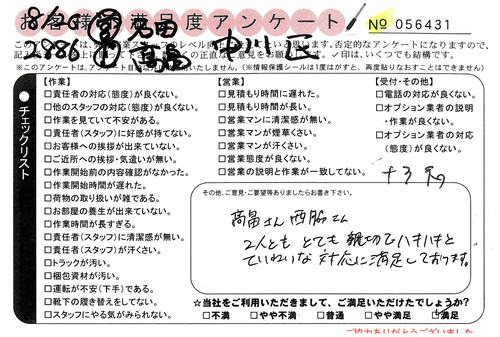 お客様満足度アンケート
8/20
№ 056431
2986
中川区
※このアンケート
(※情報保護シールは1度はがすと、再度貼りなおすことはできません)
チェックリスト
【作業】
□責任者の対応(態度)が良くない。
□他のスタッフの対応(態度)が良くない。
□作業を見ていて不安がある。
□責任者(スタッフ)に好感が持てない。
□お客様への挨拶が出来ていない。
□ご近所への挨拶・気遣いが無い。
□作業開始前の内容確認がなかった。
□作業開始時間が遅れた。
□荷物の取り扱いが雑である。
□お部屋の養生が出来ていない。
□作業時間が長すぎる。
□責任者(スタッフ)に清潔感が無い。
□責任者(スタッフ)が汗くさい。
□トラックが汚い。
□梱包資材が汚い。
□運転が不安(下手)である。
□靴下の履き替えをしてない。
□スタッフにやる気がみられない。
【営業】
□見積もり時間に遅れた。
□見積もり時間が長い。
□営業マンに清潔感が無い。
□営業マンが煙草くさい。
□営業マンが汗くさい。
□営業態度が良くない。
□営業の説明と作業が一致してない。
【受付・その他】
□電話の対応が良くない。
□オプション業者の説明
・作業が良くない。
□オプション業者の対応
(態度)が良くない。
その他、ご意見・ご要望等ありましたらお書き下さい。
高畠さん 西脇さん
2人とも とても 親切でハキハキと
ていねいな 対応に満足しております。
☆当社をご利用いただきまして、ご満足いただけたでしょうか?
□不満 □やや不満 □普通 □やや満足 ☑満足
ご協力ありがとうございました